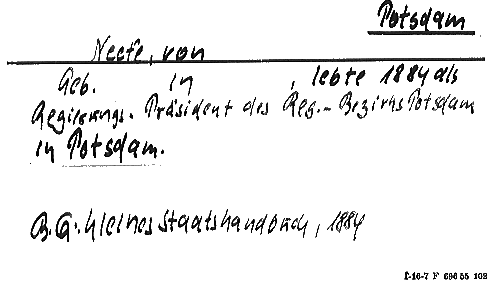 Potsdam
Neefe, von
Geb. in , lebte 1884 als
Regierungs-Präsident des Reg.-Bezirks Potsdam
in Potsdam.
B.G. Kleines Staatshandbuch, 1884
I-16-7 F 696 55 102